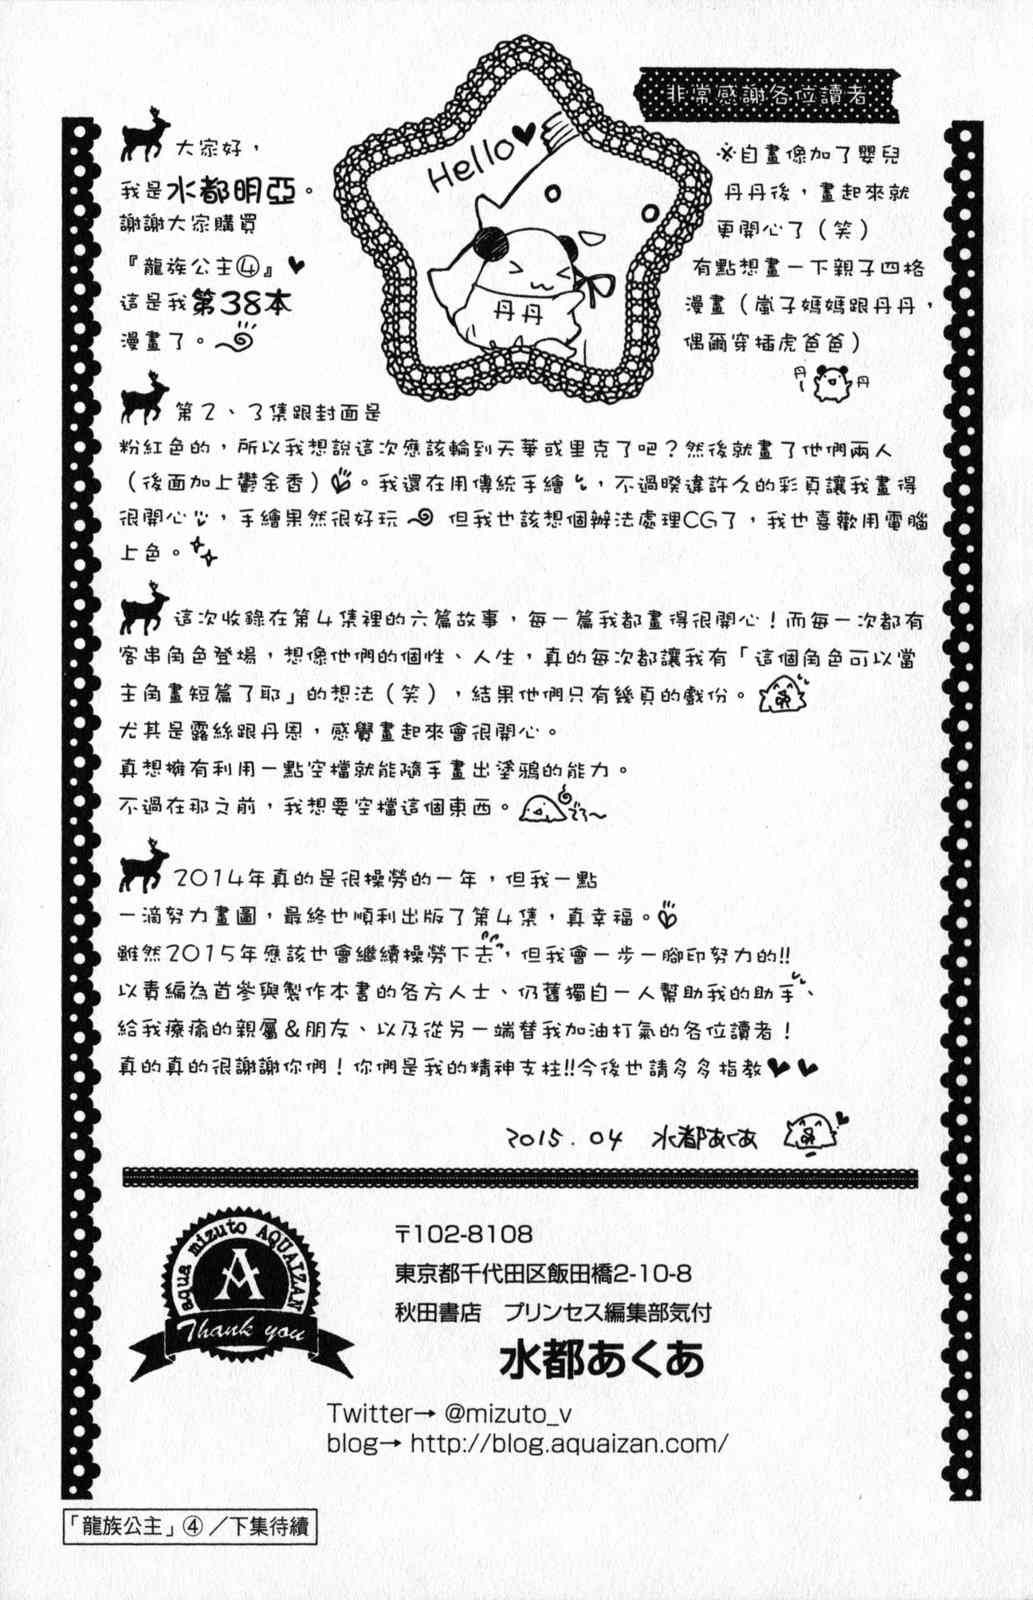 非常感謝各位讀者
大家好，
我是水都明亞。
謝謝大家購買
『龍族公主④』
這是我第38本
漫畫了。
Hello
丹丹
※自畫像加了嬰兒
丹丹後，畫起來就
更開心了（笑）
有點想畫一下親子四格
漫畫（嵐子媽媽跟丹丹，
偶爾穿插虎爸爸）
丹
丹
第2、3集跟封面是
粉紅色的，所以我想說這次應該輪到天華或里克了吧？然後就畫了他們兩人
（後面加上鬱金香）。我還在用傳統手繪，不過睽違許久的彩頁讓我畫得
很開心，手繪果然很好玩 但我也該想個辦法處理CG了，我也喜歡用電腦
上色。
這次收錄在第4集裡的六篇故事，每一篇我都畫得很開心！而每一次都有
客串角色登場，想像他們的個性、人生，真的每次都讓我有「這個角色可以當
主角畫短篇了耶」的想法（笑），結果他們只有幾頁的戲份。
尤其是露絲跟丹恩，感覺畫起來會很開心。
真想擁有利用一點空檔就能隨手畫出塗鴉的能力。
不過在那之前，我想要空檔這個東西。
でろ〜
2014年真的是很操勞的一年，但我一點
一滴努力畫圖，最終也順利出版了第4集，真幸福。
雖然2015年應該也會繼續操勞下去，但我會一步一腳印努力的!!
以責編為首參與製作本書的各方人士、仍舊獨自一人幫助我的助手、
給我療癒的親屬＆朋友、以及從另一端替我加油打氣的各位讀者！
真的真的很謝謝你們！你們是我的精神支柱!!今後也請多多指教
2015.04 水都あくあ
aqua mizuto AQUAIZAN
A
Thank you
〒102-8108
東京都千代田区飯田橋2-10-8
秋田書店　プリンセス編集部気付
水都あくあ
Twitter→ @mizuto_v
blog→ http://blog.aquaizan.com/
「龍族公主」④／下集待續